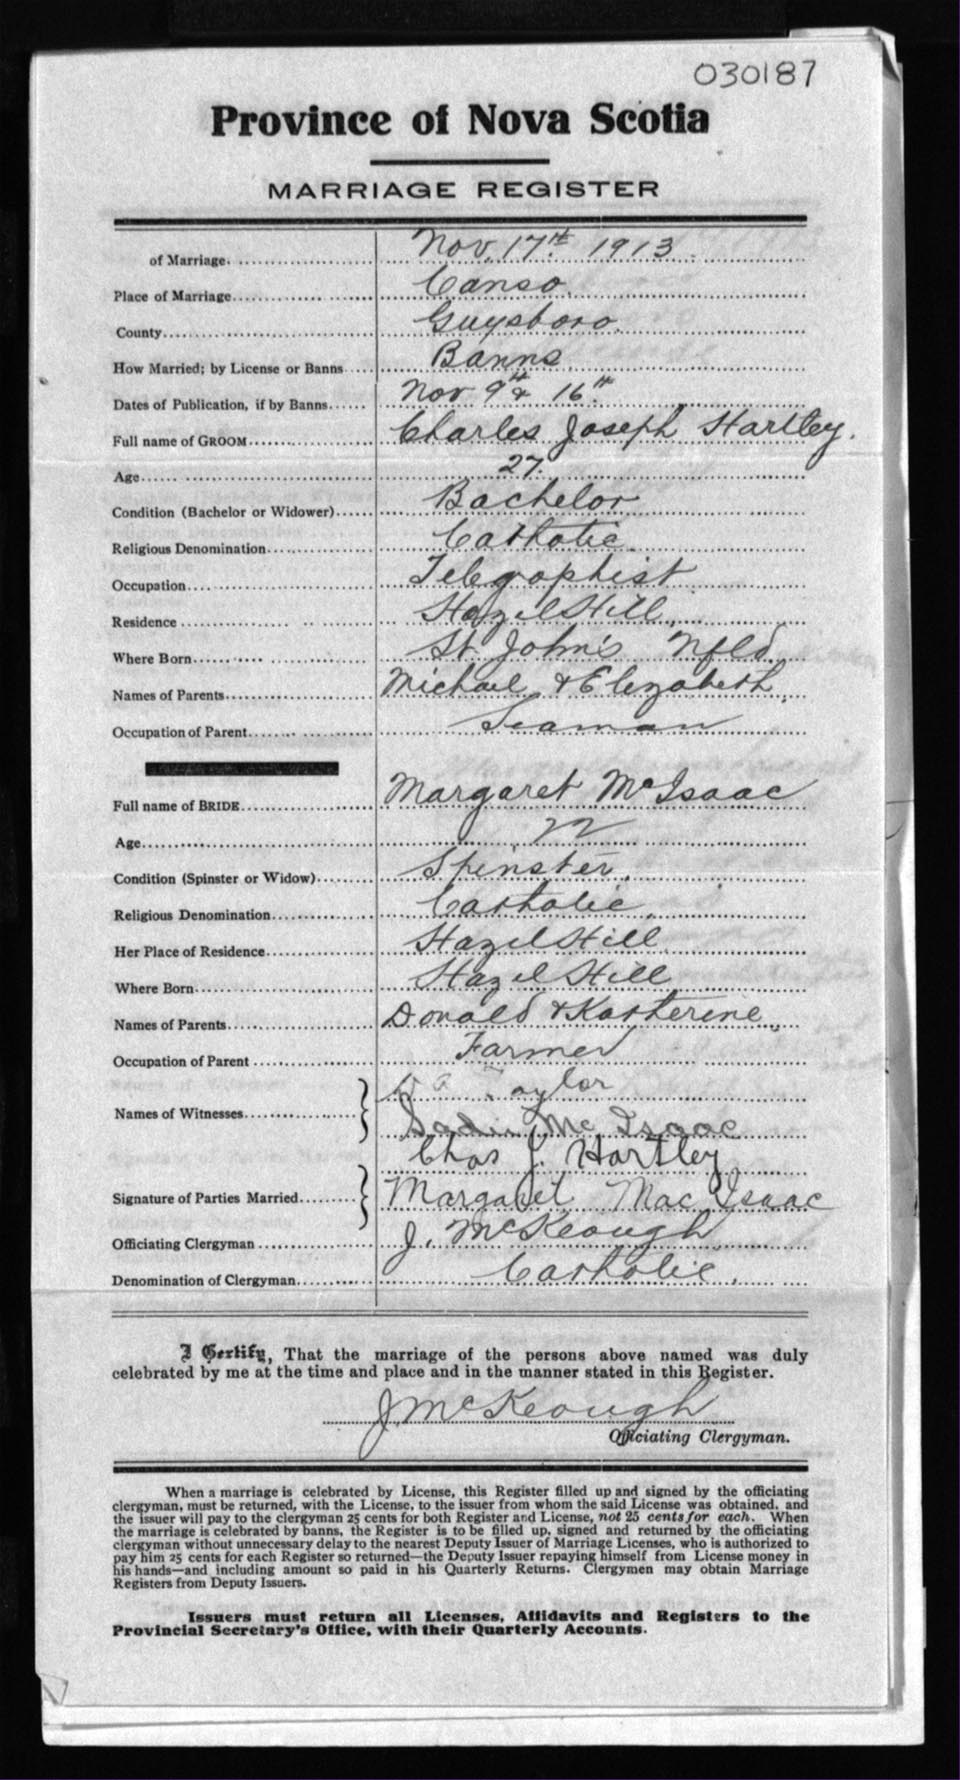 030187
Province of Nova Scotia
MARRIAGE REGISTER
of Marriage. Nov. 17th. 1913
Place of Marriage Canso.
County Guysboro.
How Married; by License or Banns Banns.
Dates of Publication, if by Banns Nov 9th & 16th.
Full name of GROOM Charles Joseph Hartley.
Age 27.
Condition (Bachelor or Widower) Bachelor
Religious Denomination Catholic.
Occupation Telegraphist
Residence Hazel Hill.
Where Born St. John's Nfld.
Names of Parents Michael & Elizabeth.
Occupation of Parent Seaman
Full name of BRIDE Margaret McIsaac
Age 22
Condition (Spinster or Widow) Spinster.
Religious Denomination Catholic.
Her Place of Residence Hazel Hill.
Where Born Hazel Hill
Names of Parents Donald & Katherine.
Occupation of Parent Farmer
Taylor
Names of Witnesses Sadie McIsaac
Chas J. Hartley
Signature of Parties Married Margaret MacIsaac
Officiating Clergyman J. McKeough
Denomination of Clergyman Catholic.
I Certify, That the marriage of the persons above named was duly
celebrated by me at the time and place and in the manner stated in this Register.
J McKeough
Officiating Clergyman.
When a marriage is celebrated by License, this Register filled up and signed by the officiating
clergyman, must be returned, with the License, to the issuer from whom the said License was obtained, and
the issuer will pay to the clergyman 25 cents for both Register and License, not 25 cents for each. When
the marriage is celebrated by banns, the Register is to be filled up, signed and returned by the officiating
clergyman without unnecessary delay to the nearest Deputy Issuer of Marriage Licenses, who is authorized to
pay him 25 cents for each Register so returned—the Deputy Issuer repaying himself from License money in
his hands—and including amount so paid in his Quarterly Returns. Clergymen may obtain Marriage
Registers from Deputy Issuers.
Issuers must return all Licenses, Affidavits and Registers to the
Provincial Secretary's Office, with their Quarterly Accounts.